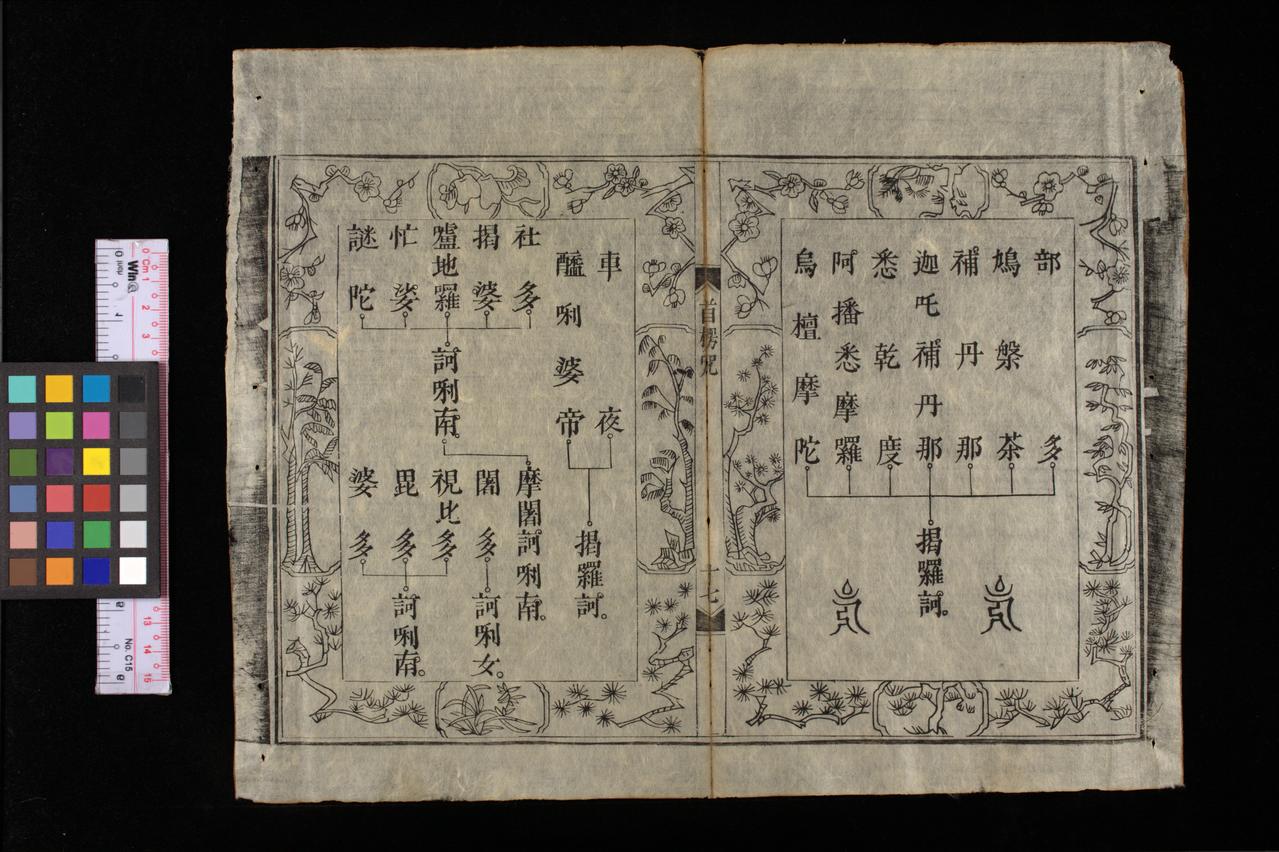 部多
鳩槃茶
補丹那
迦吒補丹那
悉乾度
阿播悉摩羅
烏檀摩陀
揭羅訶。
首楞咒
十七
車夜
醯唎婆帝
揭羅訶。
社多
揭婆
嚧地羅
忙娑
謎陀
訶唎南。
摩闍訶唎南。
闍多
訶唎女。
視比多
毘多
婆多
訶唎南。